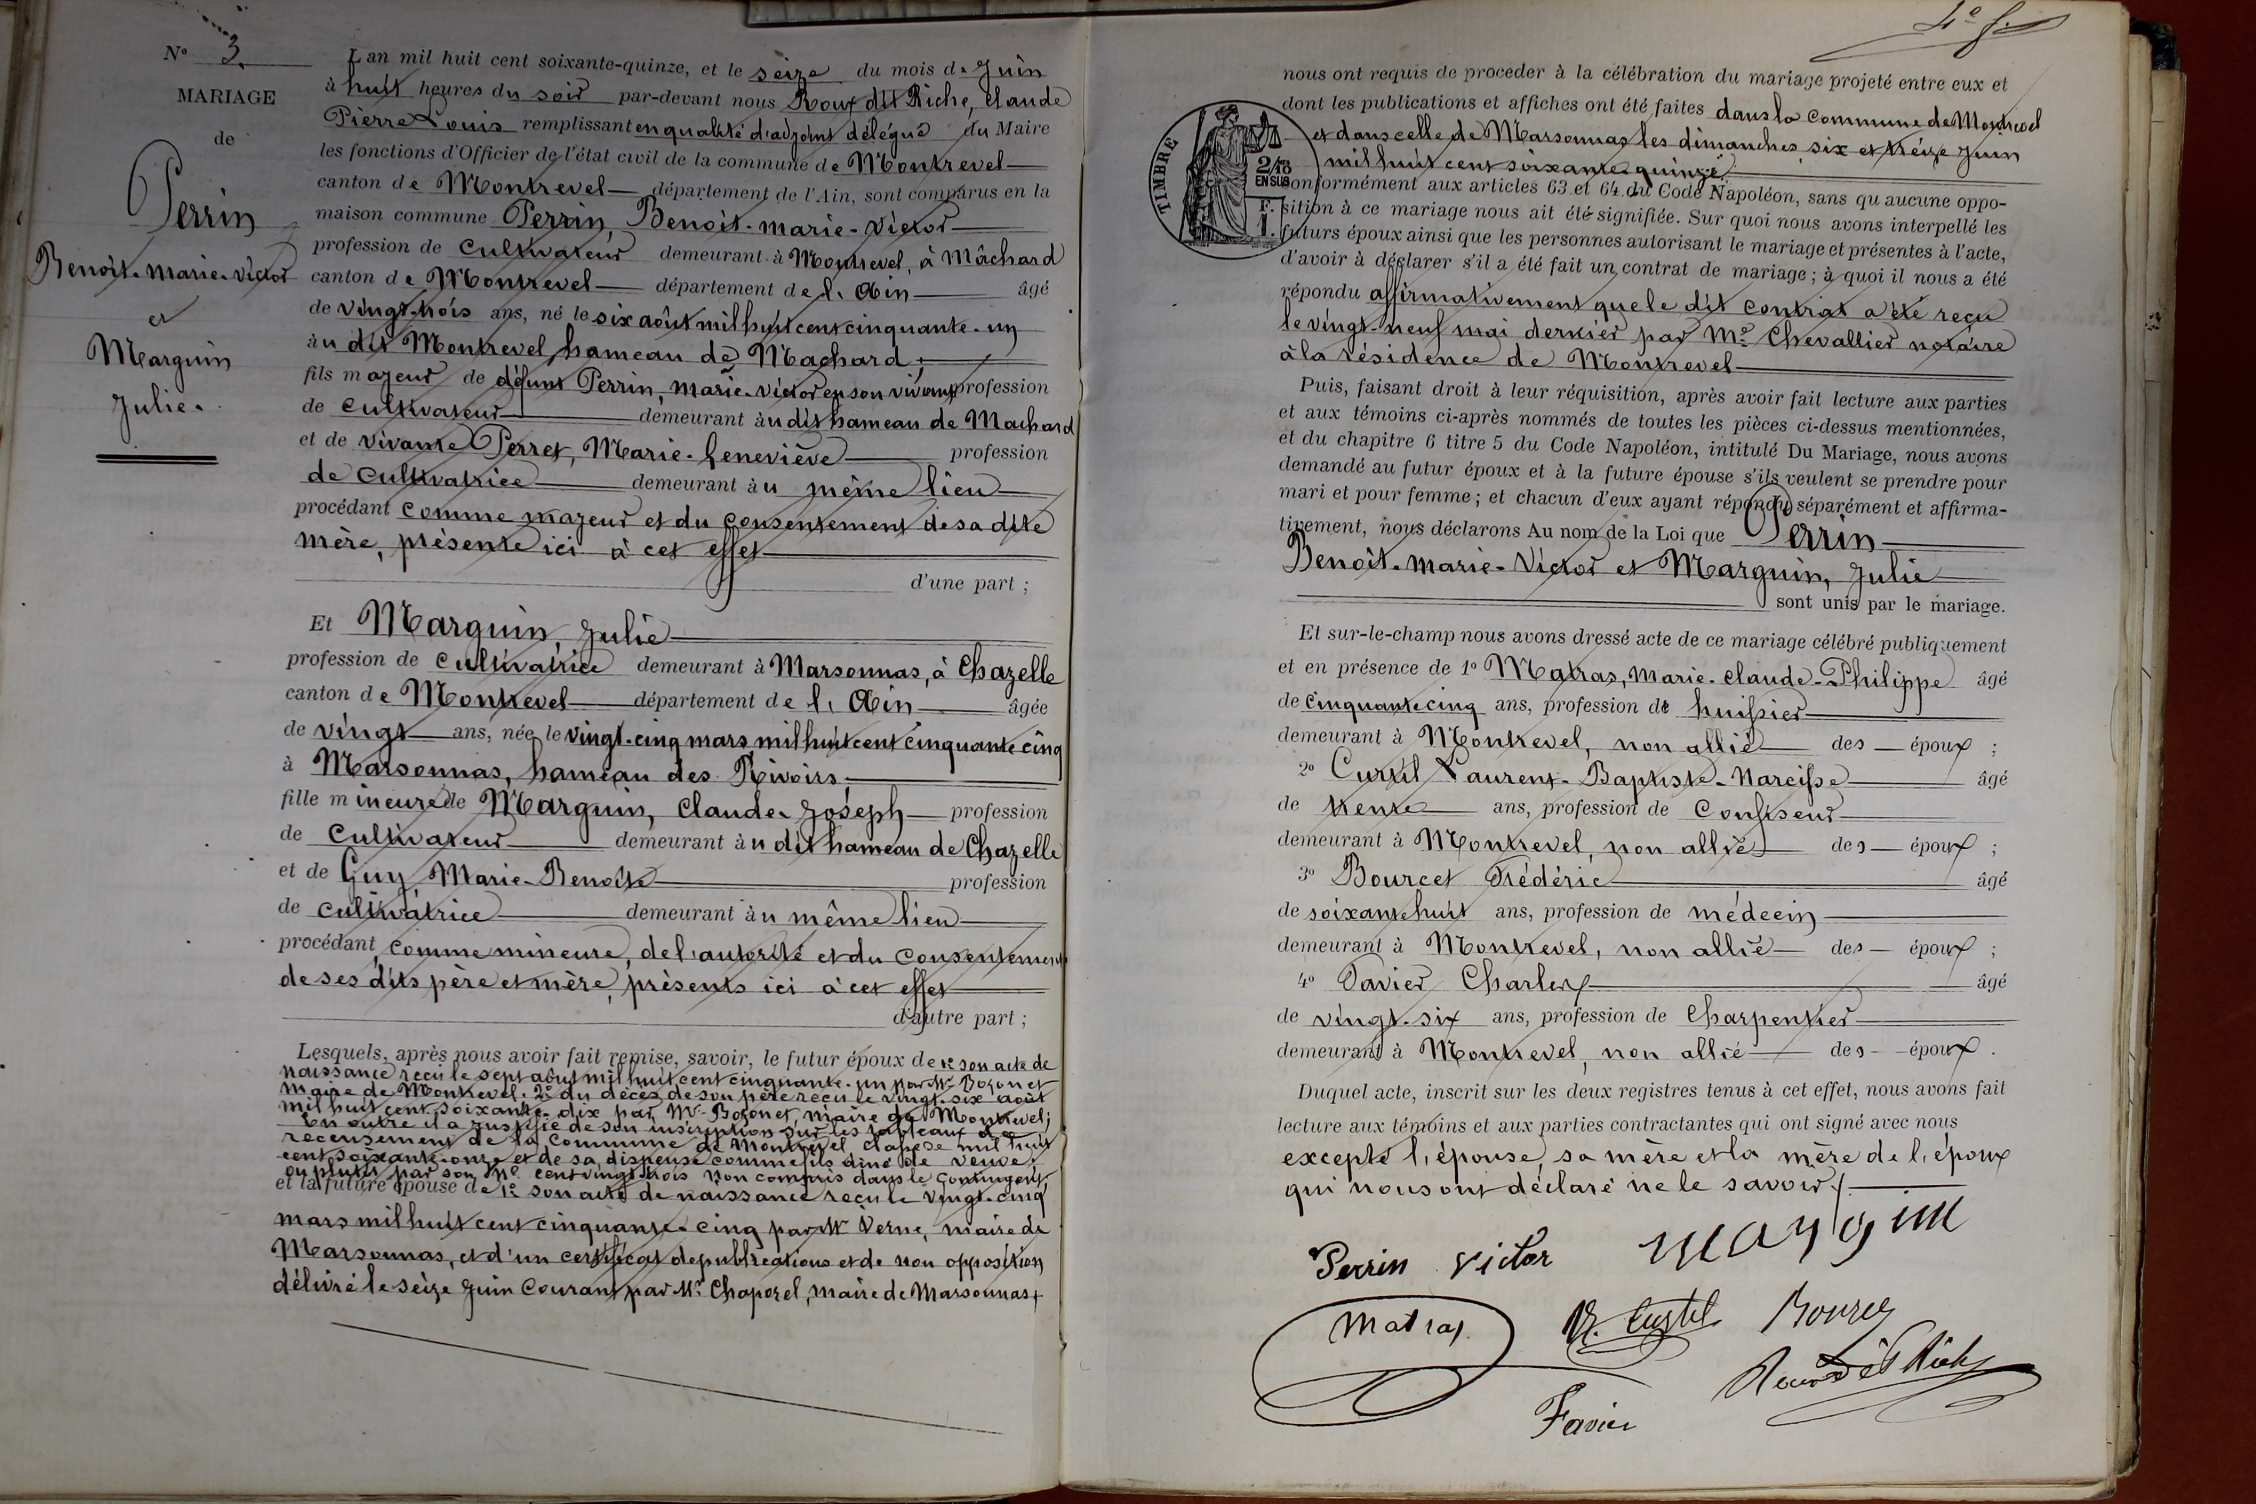 N° 3.
MARIAGE
de
Perrin
Benoit-marie-victor
et
Marguin
Julie.
L'an mil huit cent soixante-quinze, et le seize du mois de Juin
à huit heures du soir par-devant nous Roux dit Riche, Claude
Pierre Louis remplissant en qualité d'adjoint délégué du Maire
les fonctions d'Officier de l'état civil de la commune de Montrevel
canton de Montrevel département de l'Ain, sont comparus en la
maison commune Perrin, Benoit-marie-victor
profession de cultivateur demeurant à Montrevel, à Mâchard
canton de Montrevel département de l'Ain âgé
de vingt-trois ans, né le six août mil huit cent cinquante-un
au dit Montrevel, hameau de Machard,
fils majeur de défunt Perrin, marie-victor en son vivant profession
de cultivateur demeurant au dit hameau de Machard
et de vivante Perret, Marie-Geneviève profession
de cultivatrice demeurant au même lieu
procédant comme majeur et du consentement de sa dite
mère, présente ici à cet effet
d'une part ;
Et Marguin, Julie
profession de cultivatrice demeurant à Marsonnas, à Chazelle
canton de Montrevel département de l'Ain âgée
de vingt ans, née le vingt-cinq mars mil huit cent cinquante cinq
à Marsonnas, hameau des Rivoirs
fille mineure de Marguin, Claude-Joseph profession
de cultivateur demeurant au dit hameau de Chazelle
et de Guy, Marie-Benoîte profession
de cultivatrice demeurant au même lieu
procédant comme mineure, de l'autorité et du consentement
de ses dits père et mère, présents ici à cet effet
d'autre part ;
Lesquels, après nous avoir fait remise, savoir, le futur époux de 1° son acte de
naissance reçu le sept août mil huit cent cinquante-un par Mr Bozonet
maire de Montrevel. 2° du décès de son père reçu le vingt-six août
mil huit cent soixante-dix par Mr Bozonet, maire de Montrevel;
En outre il a justifié de son inscription sur les tableaux de
recensement de la Commune de Montrevel classe de mil huit
cent soixante-onze et de sa dispense comme fils ainé de veuve,
ou plutôt par son N° cent vingt-trois non compris dans le Contingent,
et la future épouse de 1° son acte de naissance reçu le vingt-cinq
mars mil huit cent cinquante-cinq par Mr Verne, maire de
Marsonnas, et d'un certificat de publications et de non opposition
délivré le seize Juin courant par Mr Chaporel, maire de Marsonnas
4e f.
nous ont requis de procéder à la célébration du mariage projeté entre eux et
dont les publications et affiches ont été faites dans la Commune de Montrevel
et dans celle de Marsonnas les dimanches six et treize Juin
mil huit cent soixante quinze
conformément aux articles 63 et 64 du Code Napoléon, sans qu'aucune oppo-
sition à ce mariage nous ait été signifiée. Sur quoi nous avons interpellé les
futurs époux ainsi que les personnes autorisant le mariage et présentes à l'acte,
d'avoir à déclarer s'il a été fait un contrat de mariage ; à quoi il nous a été
répondu affirmativement que le dit contrat a été reçu
le vingt-neuf mai dernier par Me Chevallier notaire
à la résidence de Montrevel
TIMBRE
2/10
EN SUS
Puis, faisant droit à leur réquisition, après avoir fait lecture aux parties
et aux témoins ci-après nommés de toutes les pièces ci-dessus mentionnées,
et du chapitre 6 titre 5 du Code Napoléon, intitulé Du Mariage, nous avons
demandé au futur époux et à la future épouse s'ils veulent se prendre pour
mari et pour femme ; et chacun d'eux ayant répondu séparément et affirma-
tivement, nous déclarons Au nom de la Loi que Perrin
Benoit-marie-Victor et Marguin, Julie
sont unis par le mariage.
Et sur-le-champ nous avons dressé acte de ce mariage célébré publiquement
et en présence de 1° Matras, Marie-claude-Philippe âgé
de cinquante cinq ans, profession de huissier
demeurant à Montrevel, non allié des époux ;
2° Curtil Laurent-Baptiste-Narcisse âgé
de trente ans, profession de Confiseur
demeurant à Montrevel, non allié des époux ;
3° Bourcet Frédéric âgé
de soixante huit ans, profession de médecin
demeurant à Montrevel, non allié des époux ;
4° Favier Charles âgé
de vingt-six ans, profession de Charpentier
demeurant à Montrevel, non allié des époux.
Duquel acte, inscrit sur les deux registres tenus à cet effet, nous avons fait
lecture aux témoins et aux parties contractantes qui ont signé avec nous
excepté l'épouse, sa mère et la mère de l'époux
qui nous ont déclaré ne le savoir
Perrin victor marguin
Matras Curtil Bourcet
Roux dit Riche
Favier